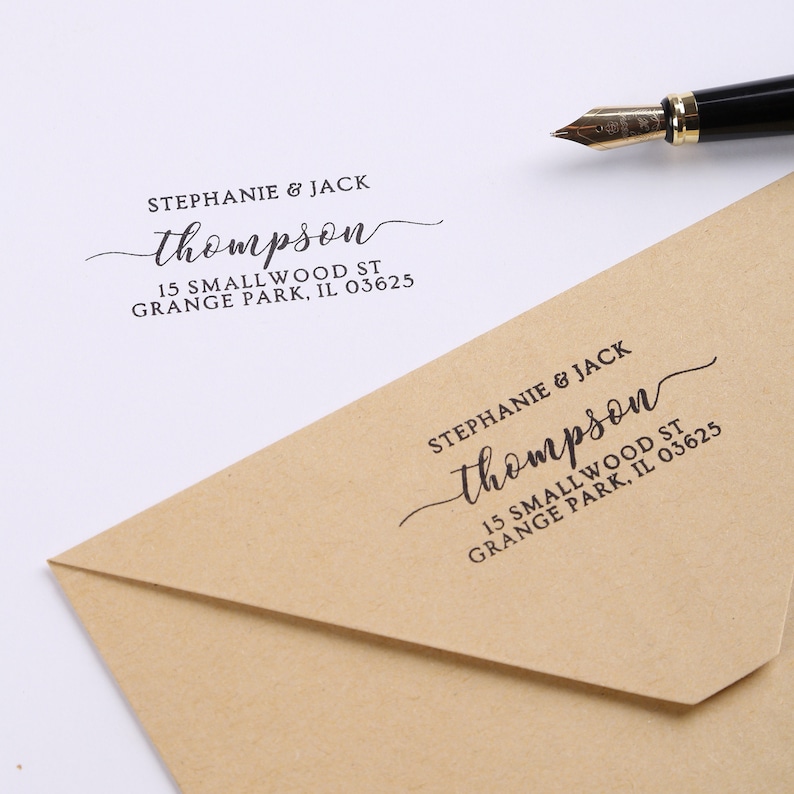 STEPHANIE & JACK
thompson
15 SMALLWOOD ST
GRANGE PARK, IL 03625
STEPHANIE & JACK
thompson
15 SMALLWOOD ST
GRANGE PARK, IL 03625